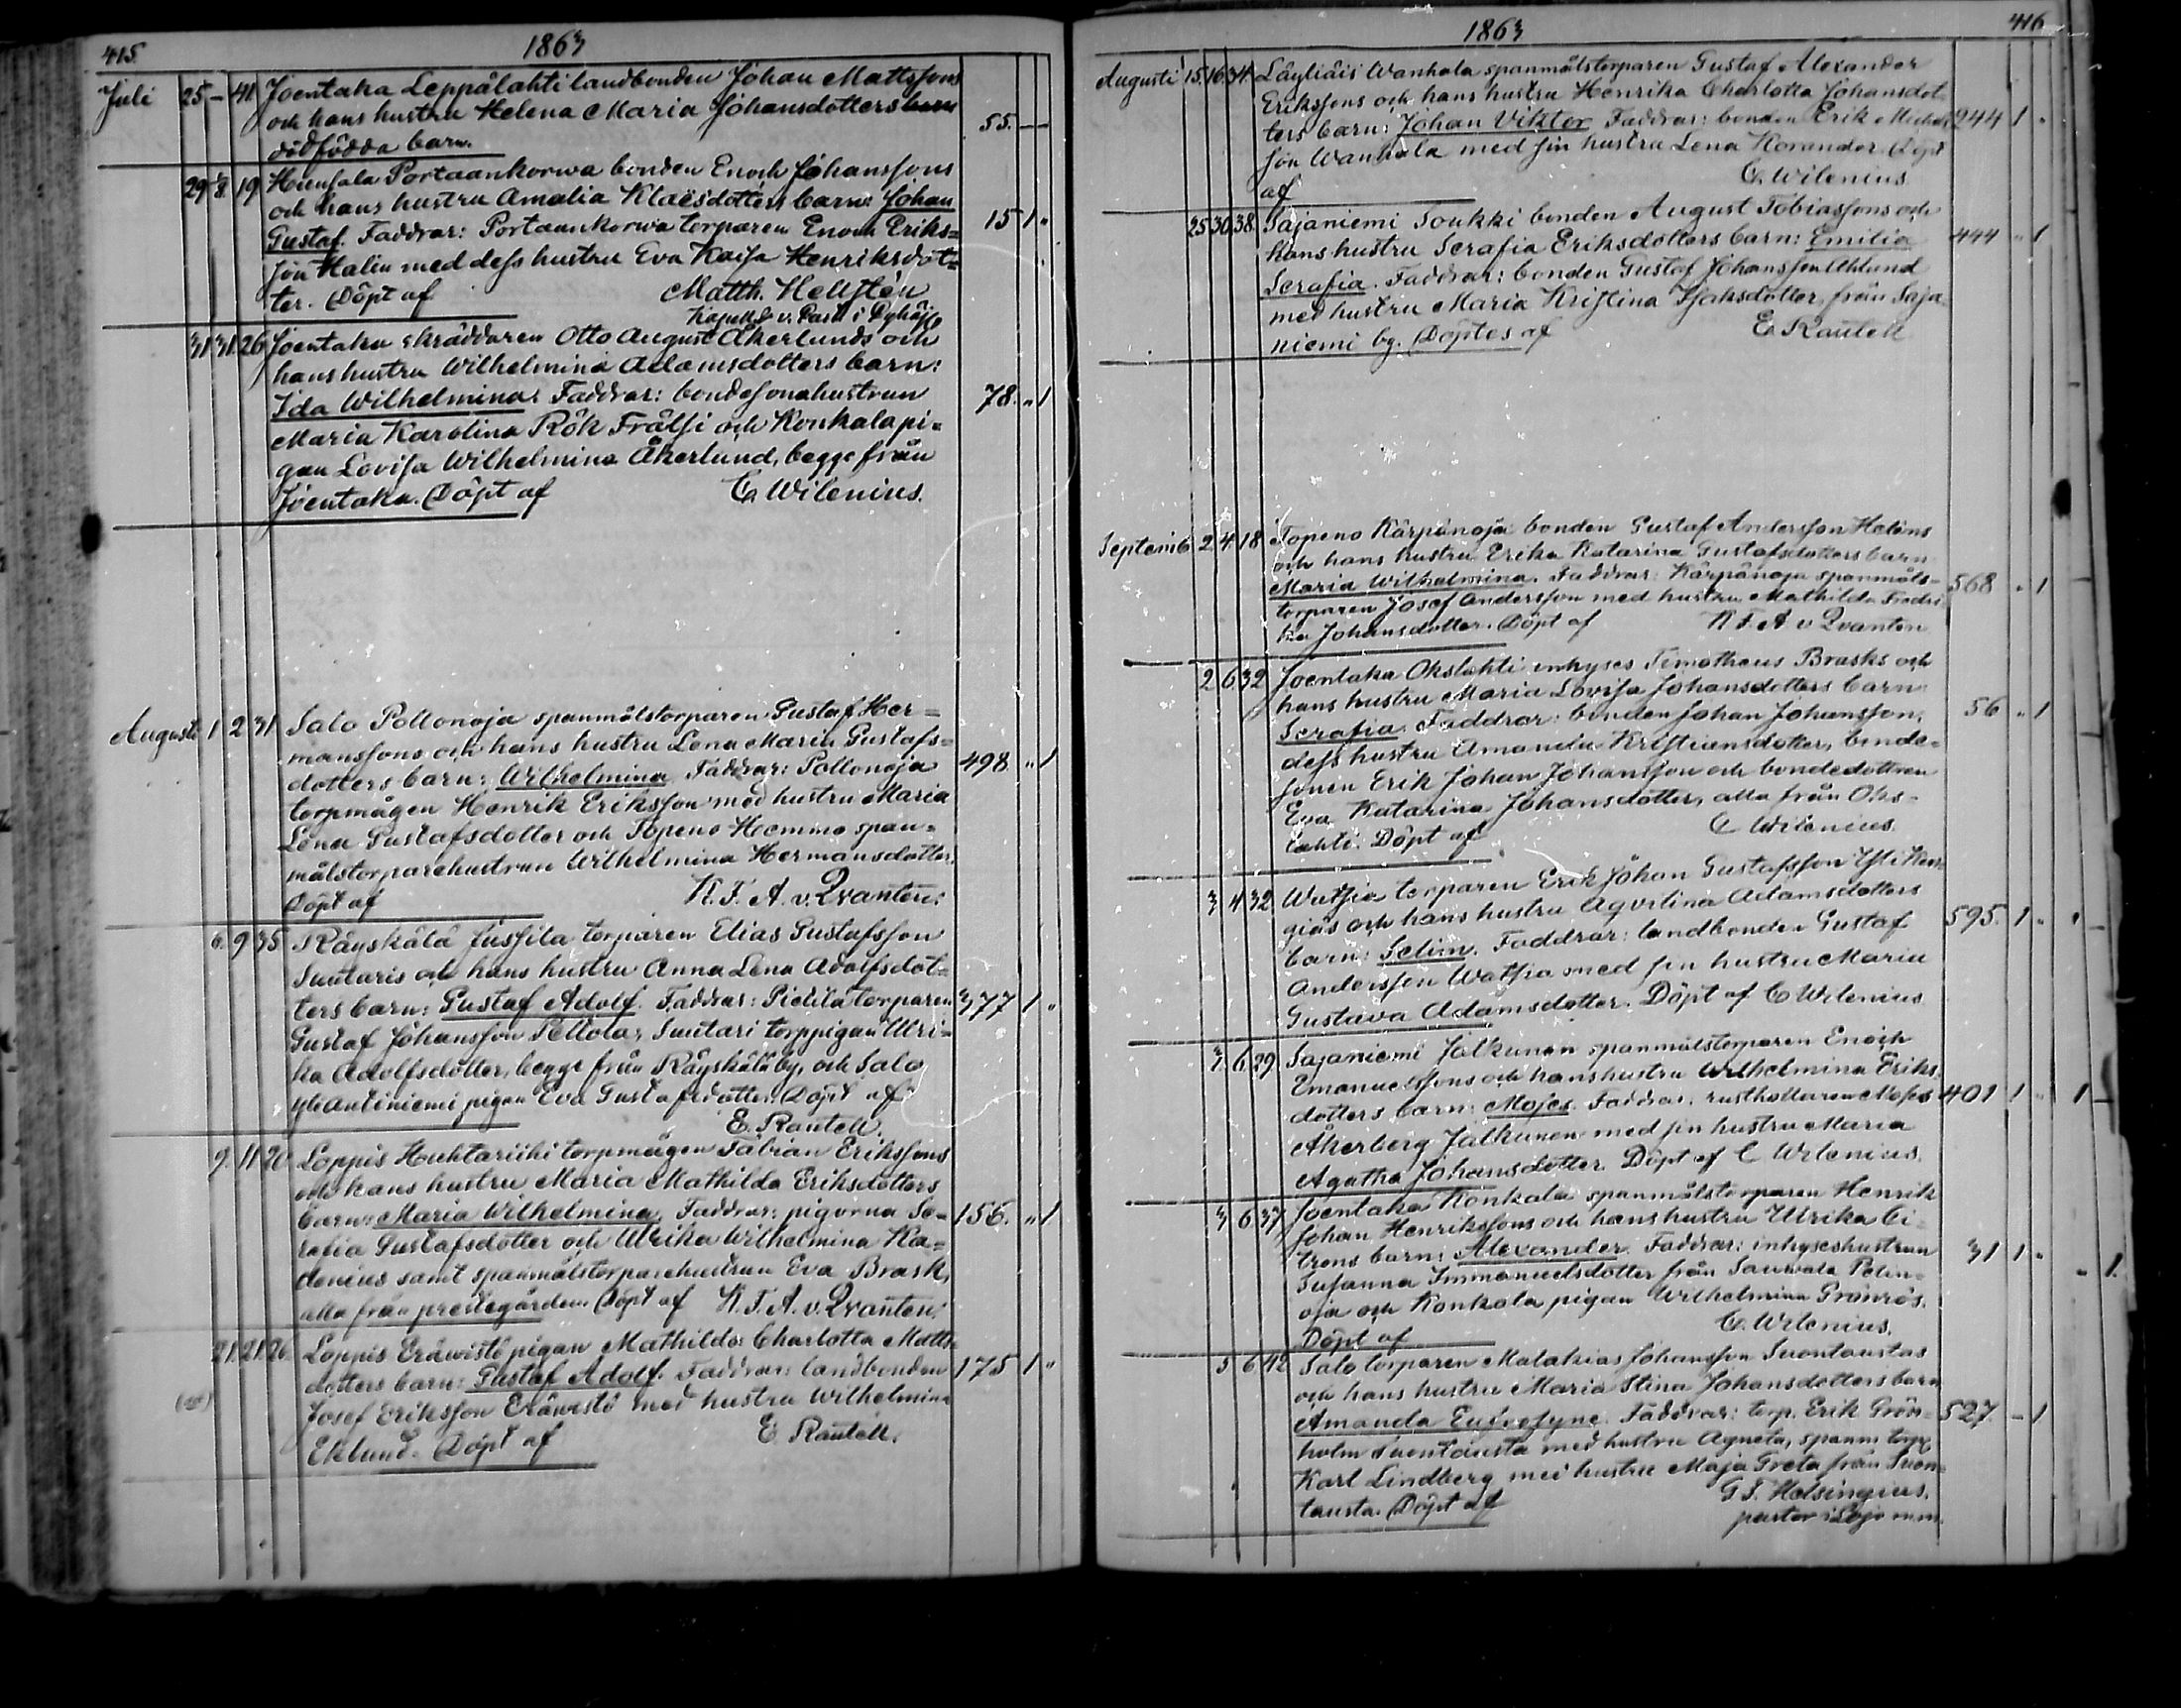 415.
1863
Juli 25 - 41 Joentaka Leppälahti landbonden Johan Mattssons
och hans hustru Helena Maria Johansdotters barn
dödfödda barn. 55. —
29 2/8 19 Hunsala Portaankorwa bonden Enoch Johanssons
och hans hustru Amalia Klaësdotters barn: Johan
Gustaf. Faddrar: Portaankorwa torparen Enoch Eriks= 15 1 "
son Malin med dess hustru Eva Kajsa Henriksdot=
ter. Döpt af Matth. Hellstén
Kapell. v. Past. i
31 31 26 Joentaka skräddaren Otto August Åkerlunds och
hans hustru Wilhelmina Adamsdotters barn:
Ida Wilhelmina. Faddrar: bondesonahustrun 78. " 1
Maria Karolina Rök Frälsi och Konkala pi=
gan Lovisa Wilhelmina Åkerlund, begge från
Joentaka. Döpt af C. Wilenius.
Augusti 1 2 31 Salo Pollonoja spanmålstorparen Gustaf Her=
manssons och hans hustru Lena Maria Gustafs=
dotters barn: Wilhelmina Faddrar: Pollonoja 498 " 1
torpmågen Henrik Eriksson med hustru Maria
Lena Gustafsdotter och Topeno Hemmo span=
målstorparehustrun Wilhelmina Hermansdotter.
Döpt af K. F. A. v. Qvanten.
6. 9 35 Räyskälä Jussila torparen Elias Gustafsson
Suutaris och hans hustru Anna Lena Adolfsdot=
ters barn: Gustaf Adolf. Faddrar: Pietila torparen 377 1 "
Gustaf Johansson Pellola, Suutari torppigan Ulri=
ka Adolfsdotter, begge från Räyskälä by, och Salo
Yliantiniemi pigan Eva Gustafsdotter. Döpt af
E. Rautell.
9. 11 20 Loppis Huhtariihi torpmågen Fabian Erikssons
och hans hustru Maria Mathilda Eriksdotters
barn: Maria Wilhelmina. Faddrar: pigorna Se= 156. " 1
rafia Gustafsdotter och Ulrika Wilhelmina Ka=
denius samt spanmålstorparehustrun Eva Brask,
alla från prestegården. Döpt af K. F. A. v. Qvanten.
21. 21. 26. Loppis Eräwistö pigan Mathilda Charlotta Matts=
dotters barn: Gustaf Adolf. Faddrar: landbonden 175 1 "
Josef Eriksson Eräwistö med hustru Wilhelmina
Eklund. Döpt af E. Rautell.
1863
416
Augusti 15. 16. 34. Läyliäis Wanhala spanmålstorparen Gustaf Alexander
Erikssons och hans hustru Henrika Charlotta Johansdot
ters barn: Johan Viktor. Faddrar: bonden Erik 244 1 "
son Wanhala med sin hustru Lena Korander. Döpt
af C. Wilenius
25 30 38. Sajaniemi Toukki bonden August Tobiassons och
hans hustru Serafia Eriksdotters barn: Emilia 444 " 1
Serafia. Faddrar: bonden Gustaf Johansson Ahlund
med hustru Maria Kristina Isaksdotter från Saja=
niemi by. Döptes af E. Rautell
Septemb 2 4 18 Topeno Kärpänoja bonden Gustaf Andersson Heléns
och hans hustru Erika Katarina Gustafsdotters barn
Maria Wilhelmina. Faddrar: Kärpänoja spanmåls= 568 " 1
torparen Josef Andersson med hustru Mathilda Fredri
ka Johansdotter. Döpt af K. F. A v Qvanten
2 6 32 Joentaka Okslahti inhyses Timotheus Brasks och
hans hustru Maria Lovisa Johansdotters barn
Serafia. Faddrar: bonden Johan Johansson, 56 " 1
dess hustru Amanda Kristiansdotter, bonde=
sonen Erik Johan Johansson och bondedottren
Eva Katarina Johansdotter, alla från Oks=
lahti. Döpt af C. Wilenius.
3 4 32 Watsia torparen Erik Johan Gustafsson
och hans hustru Agvilina Adamsdotters
barn: Selim. Faddrar: landbonden Gustaf 595. 1 "
Andersson Watsia med sin hustru Maria
Gustava Adamsdotter. Döpt af C Wilenius
3. 6 29 Sajaniemi Jalkunen spanmålstorparen Enoch
Emanuelssons och hans hustru Wilhelmina Eriks
dotters barn: Mojes. Faddrar: rusthållaren Moses 401 1 " 1
Åkerberg Jalkunen med sin hustru Maria
Agatha Johansdotter. Döpt af C Wilenius.
3 6 37 Joentaka Konkala spanmålstorparen Henrik
Johan Henrikssons och hans hustru Ulrika Ci=
trons barn: Alexander. Faddrar: inhyseshustrun 31 1 "
Susanna Immanuelsdotter från Sauwala Petin= " 1.
oja och Konkala pigan Wilhelmina Grönrös.
Döpt af C. Wilenius.
5 6 42 Salo torparen Malakias Johansson Suontaustas
och hans hustru Maria Stina Johansdotters barn
Amanda Eufrosyne. Faddrar: torp. Erik Grön= 527. - 1
holm Suontausta med hustru Agneta, spanm torp
Karl Lindberg med hustru Maja Greta från Suon=
tausta. Döpt af G. F. Helsingius.
pastor i Lojo m.m.